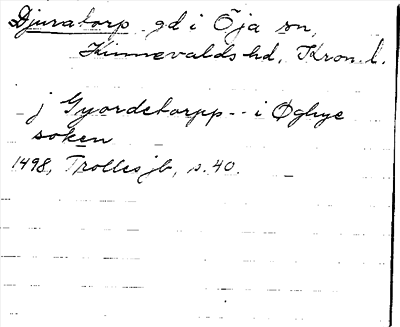 Djuratorp gd i Öja sn,
Kinnevalds hd, Kron. l.
j Gyordetorpp -- i Øghye
soken
1498, Trolles jb, s. 40.